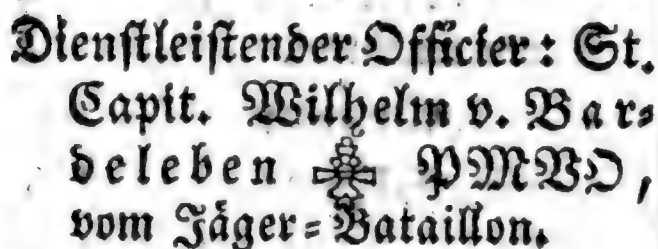 Dienſtleiſtender Officier: St.
Capit. Wilhelm v. Bar⸗
deleben PMVO,
vom Jäger⸗Bataillon.